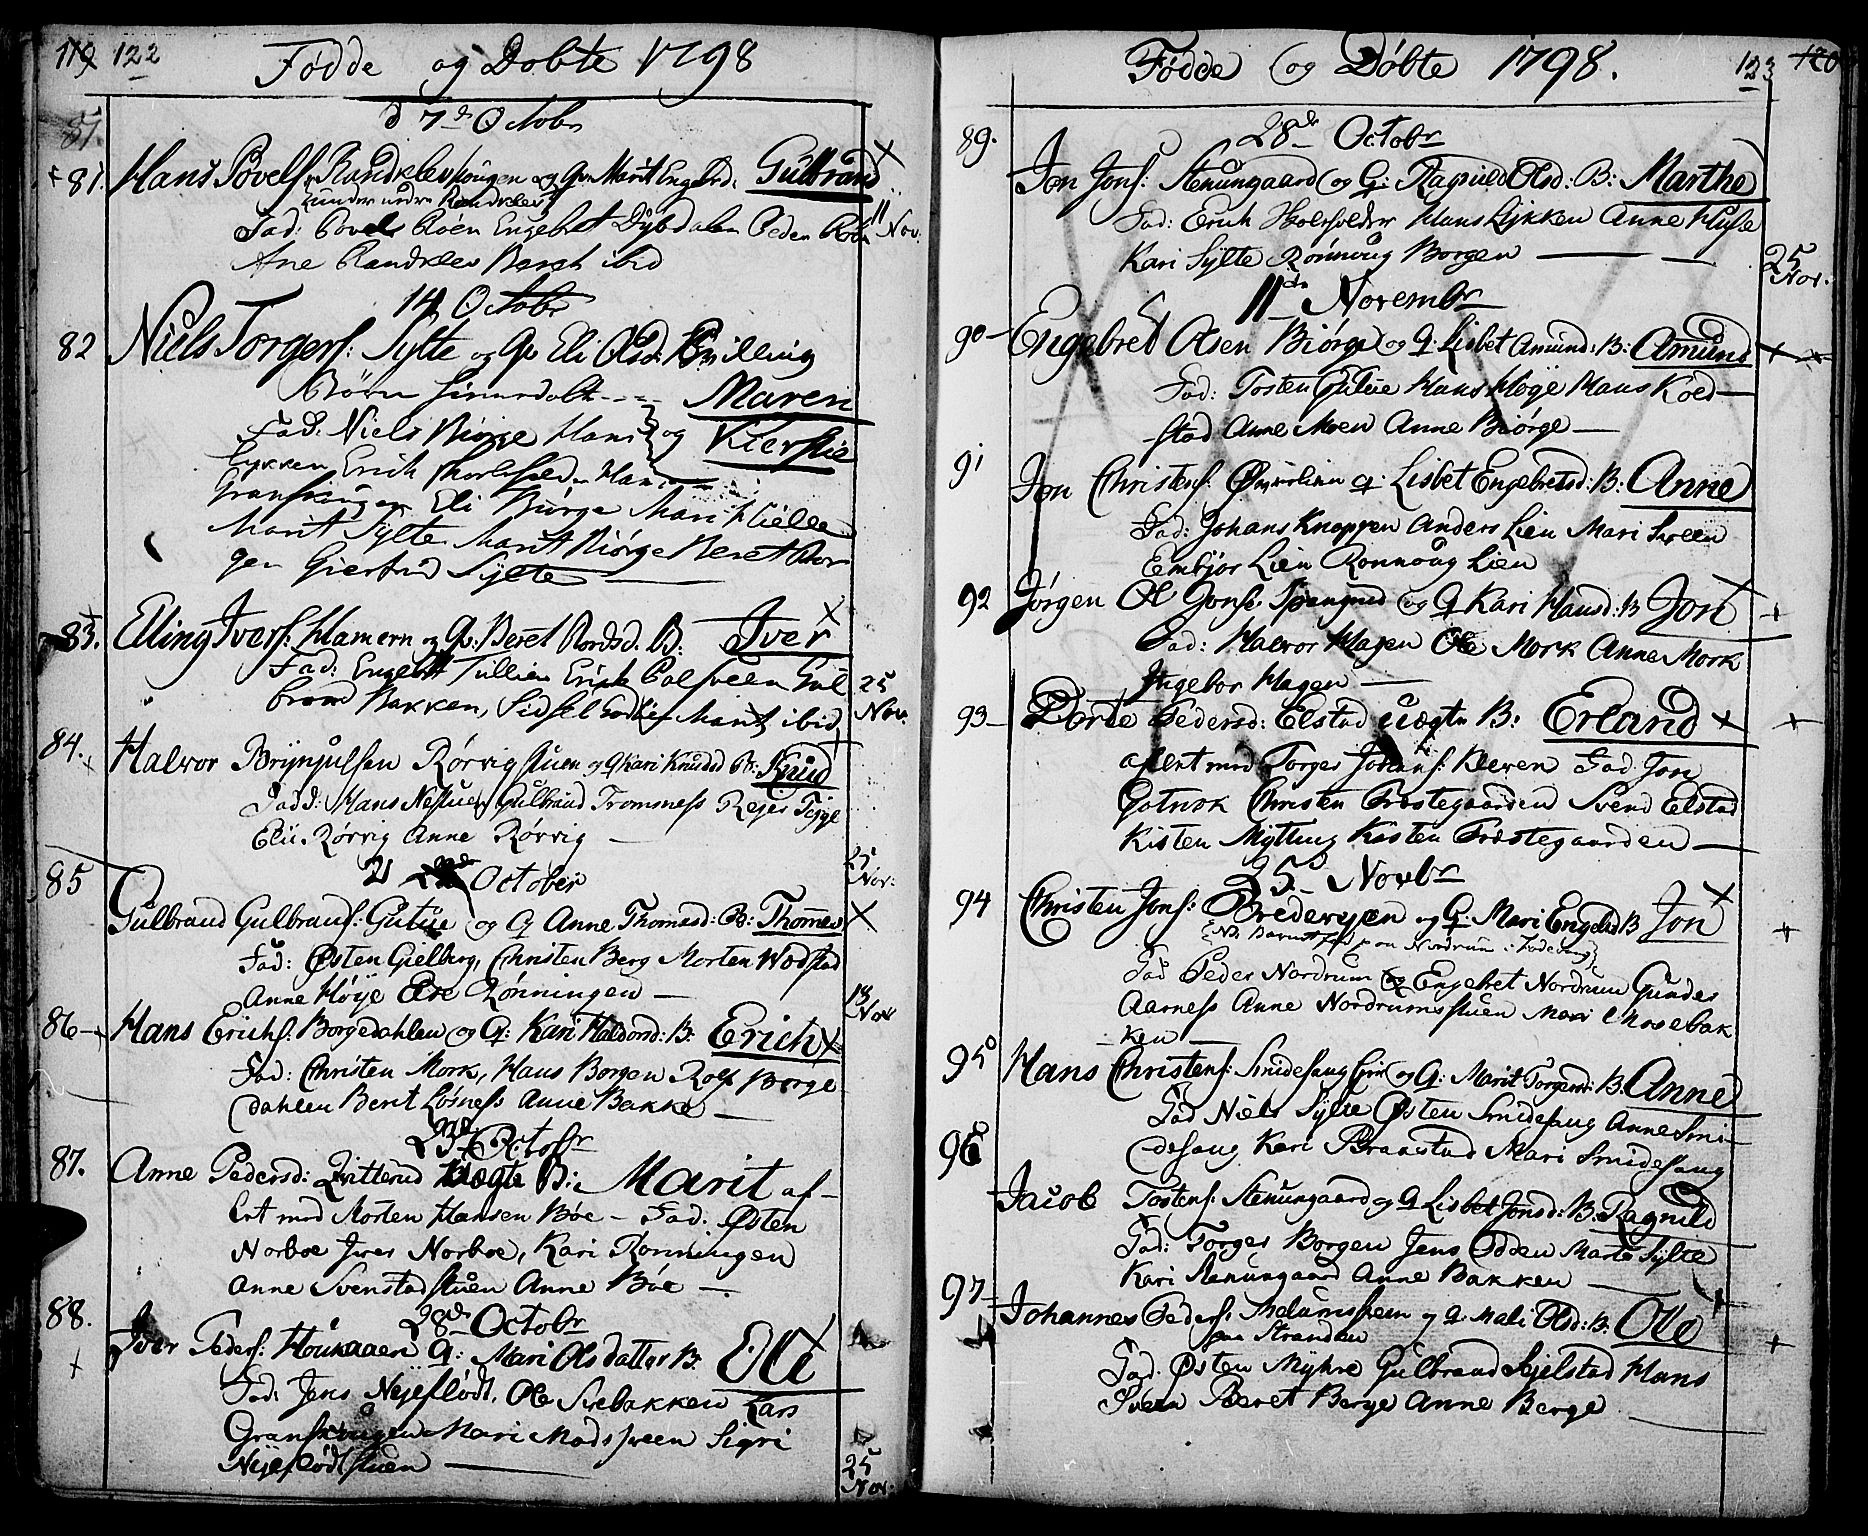 119 122 Fødde og Døbte 1798
d 7de Octobr
81.
81. Hans Povels: Randklev haugen og Q. Marit Engebrd. Gulbrand
under nedre Randklev
Fad: Povel Roen Engebret Dybdalen Peder Roen 11 Nov.
Ane Randklev Beret ibid
14 Octobr
82 Niels Torgers: Sylte og Q. Eli Olsd: Tvilling
Børn hiemdøbt - - - Maren
Fad: Niels Biørge Hans og Kierstie
Lykken Erich Skoleholder Hans
Eli Biørge Mari Kielle
Marit Sylte Marit Biørge Beret Bor
gen Giertrud Sylte
83. Elling Ivers: Hamern og Q: Beret Pordsd. B: Iver
Fad: Engebret Tullien Erich Palsveen Gul
brand Bakken, Sidsel Marit ibid 25 Nov.
84. Halvor Brynjulsen Rørvigstuen og Q Kari Knudsd B: Knud
Fadd: Hans Nestuen Gulbrand Tromness Rejer Tejge
Elii Rørvig Anne Rørvig
25 Nov:
21 October
85 Gulbrand Gulbrands: Gutue og Q Anne Thomasd: B: Thomas
Fad: Østen Gielberg, Christen Berg Morten Wodstad
Anne Høye Else Rønningen
18 Nov
86 Hans Erichs: Borgedahlen og Q: Kari Haldorsd: B: Erich
Fad: Christen Mork, Hans Borgen Rolf Borge
dahlen Berit Losness Anne Bakke
23de Octobr
87. Anne Pedersd: Qvitterud Uægte B: Marit af-
lert med Morten Hansen Bøe - Fad: Østen
Norboe Iver Norboe, Kari Rønningen
Anne Svenstadstuen Anne Bøe
28de Octobr
88. Iver Peders: Q: Mari Olsdatter B: Eli
Fad: Jens Nejeflødt, Ole Svebakken Lars
Mari Madssveen Sigri
Nejeflødtstuen
25 Nov.
Fødde og Døbte 1798. 123 120
28de Octobr
89. Jon Jons: Stenungaard og Q: Ragnild Olsd: B: Marthe
Fad: Erich Skoleholder Hans Lykken Anne Huse
Kari Sylte Rønnoug Borgen
25 Nov.
11de Novembr
90 Engebret Olsen Biørge og Q: Lisbet Amund: B: Amund
Fad: Tosten Gutue Hans Høye Hans Koed
stad Anne Moen Anne Biørge
91 Jon Christens: Q: Lisbet Engebretsd: B: Anne
Fad: Johans Knappen Anders Lien Mari Sveen
Embjor Lien Ronnoug Lien
92 Jørgen Ol Jons: og Q Kari Hansd: B Jon
Fad: Halvor Hagen Ole Mork Anne Mork
Ingebor Hagen
93 Dorte Pedersd: Elstad Uægte B: Erland
aflert med Torger Johans: Kleven Fad: Jon
Gotnok Christen Præstegaarden Svend Elstad
Kisten Mytting Kisten Præstegaarden
25 Novbr
94 Christen Jons: Bredevejen og Q: Mari Engelsd B Jon
NB Barnet fød paa Nordrum i Fodeng
Fad Peder Nordrum og Engebret Nordrum Gunder
Aarness Anne Nordrumsstuen Mari Mosebak
ken
95 Hans Christens: Smidesang og Q: Marit Torgersd: B: Anne
Fad Niels Sylte Østen Smidesang Anne Smi-
desang Kari Braastad Mari Smidesang
96
Jacob Tostens: Stenungaard og Q Lisbet Jonsd: B: Ragnild
Fad: Torger Borgen Jens Odden Marte Sylte
Kari Stenungaard Anne Bakken
97 Johannes Peders: Melumsveen og Q: Mali Olsd: B: Ole
paa Stranden
Fad: Østen Myhre Gulbrand Sejelstad Hans
Sveen Beret Berge Anne Berge